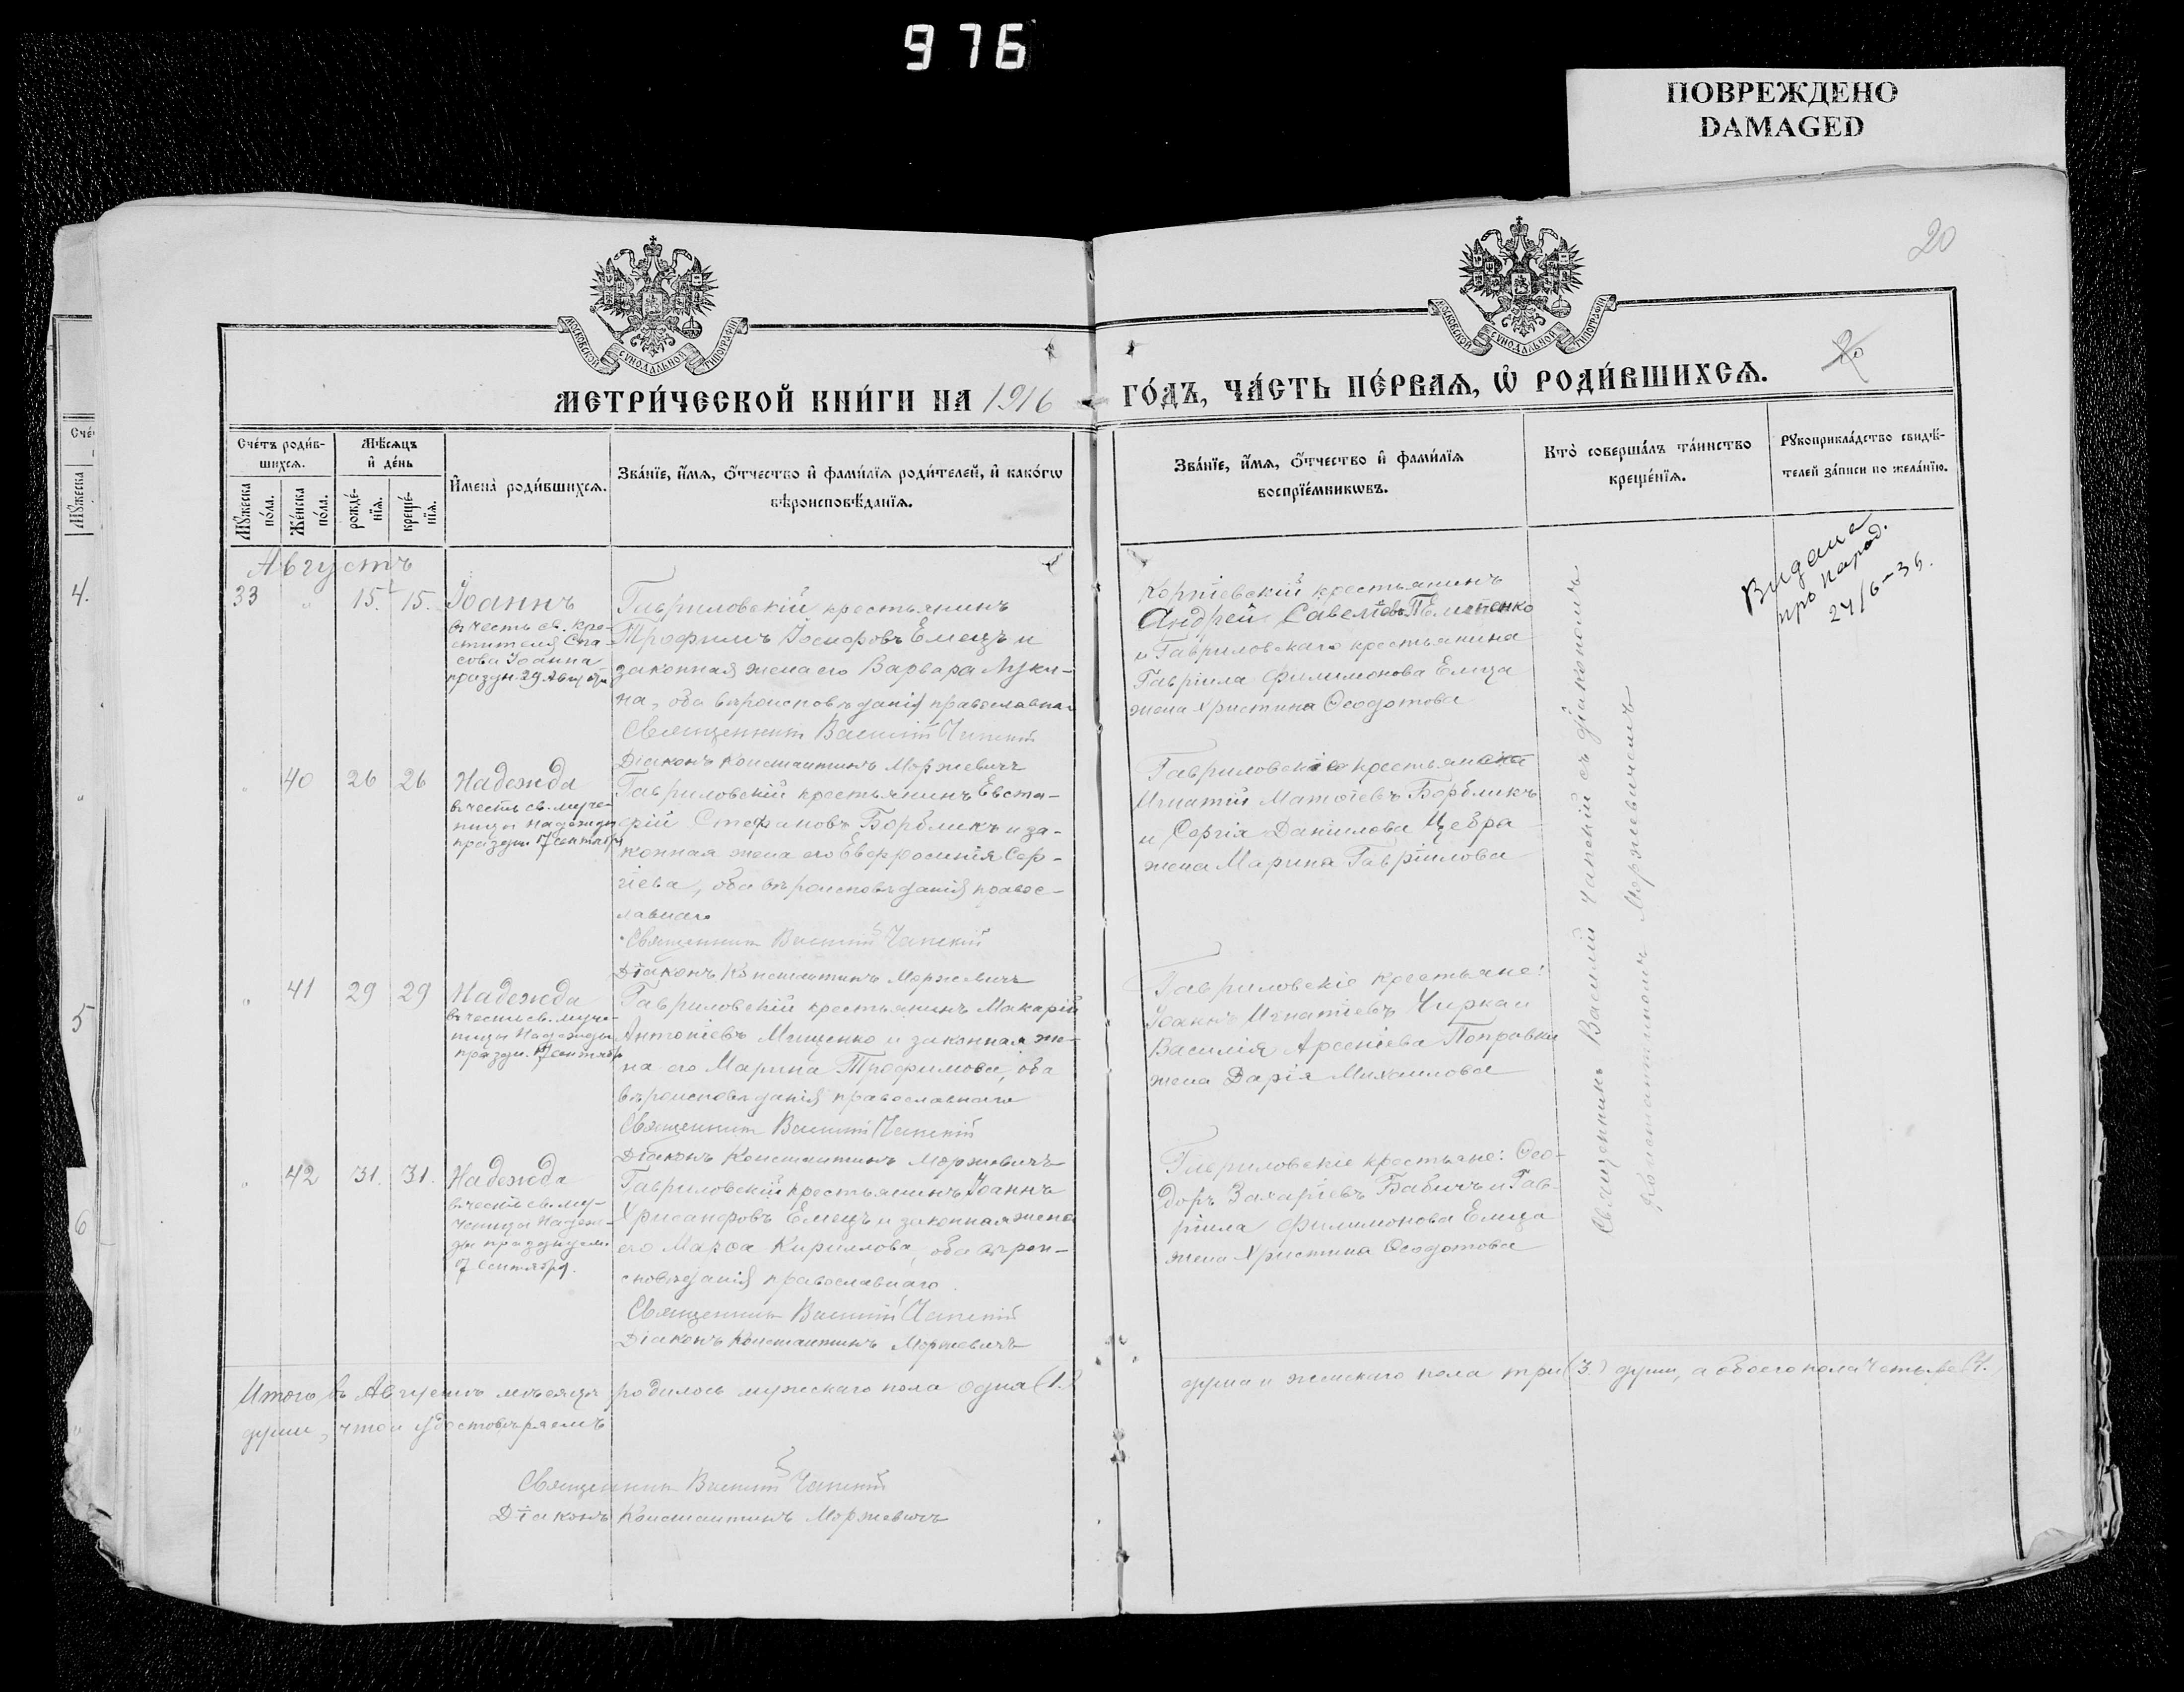 976
ПОВРЕЖДЕНО
DAMAGED
20
МОСКОВСКОЙ СѴНОДАЛЬНОЙ ТИПОГРАФІИ
МОСКОВСКОЙ СѴНОДАЛЬНОЙ ТИПОГРАФІИ
МЕТРИ́ЧЕСКОЙ КНИ́ГИ НА 1916 ГО́ДЪ, ЧА́СТЬ ПЕ́РВАѦ, Ѡ҆ РОДИ́ВШИХСѦ.
Сче́тъ роди́вшихсѧ.
Мꙋ́жеска по́ла.
Же́нска по́ла.
Мѣ́сѧцъ и҆ де́нь
рожде́нїѧ.
креще́нїѧ.
И҆мена̀ роди́вшихсѧ.
Зва́нїе, и҆́мѧ, ѻ҆́тчество и҆ фами́лїѧ роди́телей, и҆ како́гѡ вѣроисповѣ́данїѧ.
Зва́нїе, и҆́мѧ, ѻ҆́тчество и҆ фами́лїѧ воспрїе́мникѡвъ.
Кто̀ соверша́лъ та́инство креще́нїѧ.
Рꙋкоприкла́дство свидѣ́телей за́писи по жела́нїю.
Августъ
33 " 15. 15. Іоаннъ
въ честь св. Кре-
стителя Спа-
сова Іоанна
праздн. 29 Августа
Гавриловскій крестьянинъ
Трофимъ Іосифовъ Емецъ и
законная жена его Варвара Луки-
на, оба вѣроисповѣданія православнаго
Священникъ Василій Чапскій
Діаконъ Константинъ Моржевичъ
Корніевскій крестьянинъ
Андрей Савеліевъ
и Гавриловскаго крестьянина
Гавріила Филимонова Емца
жена Христина Ѳеодотова
Видана
про народ.
24/6-36.
" 40 26 26 Надежда
въ честь св. муче-
ницы Надежды
праздн. 17 сентября
Гавриловскій крестьянинъ Евста-
фій Стефановъ Борбликъ и за-
конная жена его Евфросинія Сер-
гіева, оба вѣроисповѣданія правос-
лавнаго
Священникъ Василій Чапскій
Діаконъ Константинъ Моржевичъ
Гавриловскіе крестьяне
Игнатій Матѳіевъ Борбликъ
и Сергія Даніилова Цебра
жена Марина Гавріилова
" 41 29 29 Надежда
въ честь св. муче-
ницы Надежды
праздн. 17 сентября
Гавриловскій крестьянинъ Макарій
Антоніевъ Мищенко и законная же-
на его Марина Трофимова, оба
вѣроисповѣданія православнаго
Священникъ Василій Чапскій
Діаконъ Константинъ Моржевичъ
Гавриловскіе крестьяне:
Іоаннъ Игнатіевъ Чирка и
Василія Арсеніева Поправки
жена Дарія Михаилова
" 42 31. 31. Надежда
въ честь св. му-
ченицы Надеж-
ды празднуем.
17 Сентября.
Гавриловскій крестьянинъ Іоаннъ
Хрисанфовъ Емецъ и законная жена
его Марѳа Кириллова, оба вѣрои-
сповѣданія православнаго.
Священникъ Василій Чапскій
Діаконъ Константинъ Моржевичъ
Гавриловскіе крестьяне: Ѳео-
доръ Захаріевъ Бабичъ и Гав-
ріила Филимонова Емца
жена Христина Ѳеодотова
Священникъ Василій Чапскій съ діакономъ
Константиномъ Моржевичемъ
Итого въ Августѣ мѣсяцѣ родилось мужскаго пола одна (1.) душа и женскаго пола три (3.) души, а обоего пола четыре (4.
души, что и удостовѣряемъ
Священникъ Василій Чапскій
Діаконъ Константинъ Моржевичъ
Сче́
Мꙋ́жеска
4.
"
5
6